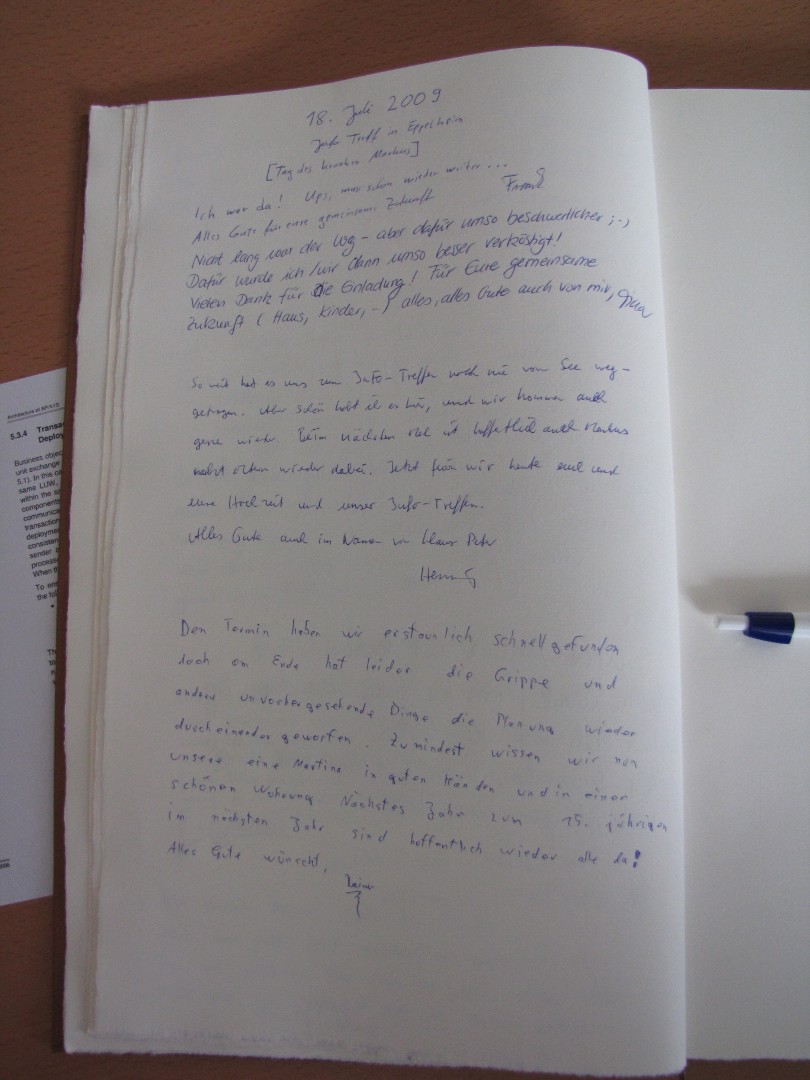 18. Juli 2009
Info Treff in Eppelheim
[Tag des kranken Markus]
Ich war da! Ups, muss schon wieder weiter...
Frank
Alles Gute für eure gemeinsame Zukunft
Nicht lang war der Weg - aber dafür umso beschwerlicher ;-)
Dafür wurde ich/wir dann umso besser verköstigt!
Vielen Dank für die Einladung! Für Eure gemeinsame
Zukunft (Haus, Kinder, ...) alles, alles Gute auch von mir,
So weit hat es uns zum Info-Treffen noch nie vom See weg-
getragen. Aber schön habt ihr es hier, und wir kommen auch
gerne wieder. Beim nächsten Mal ist hoffentlich auch Markus
wieder dabei. Jetzt feiern wir heute euch und
eure Hochzeit und unser Info-Treffen.
Alles Gute auch im Namen von Klaus Peter
Den Termin haben wir erstaunlich schnell gefunden
doch am Ende hat leider die Grippe und
andere unvorhergesehende Dinge die Planung wieder
durcheinander geworfen. Zumindest wissen wir nun
unsere eine Martina in guten Händen und in einer
schönen Wohnung. Nächstes Jahr zum 25. jährigen
im nächsten Jahr sind hoffentlich wieder alle da!
Alles Gute wünscht,
Rainer
5.3.4
Business objec
unit exchange
5.1). In this ca
same LUW,
within the
components
communica
transaction
deployment
consisten
sender
processe
When th
To en
the fol